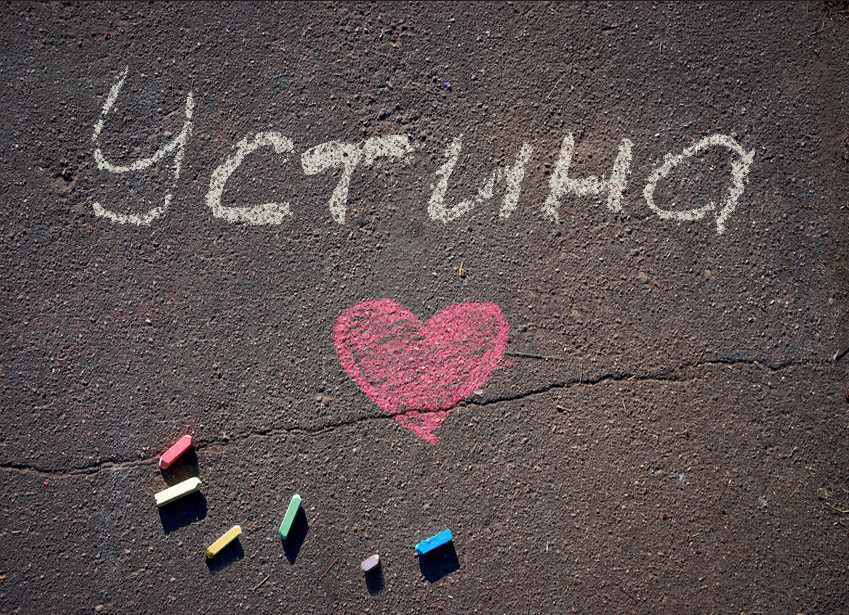 Устина